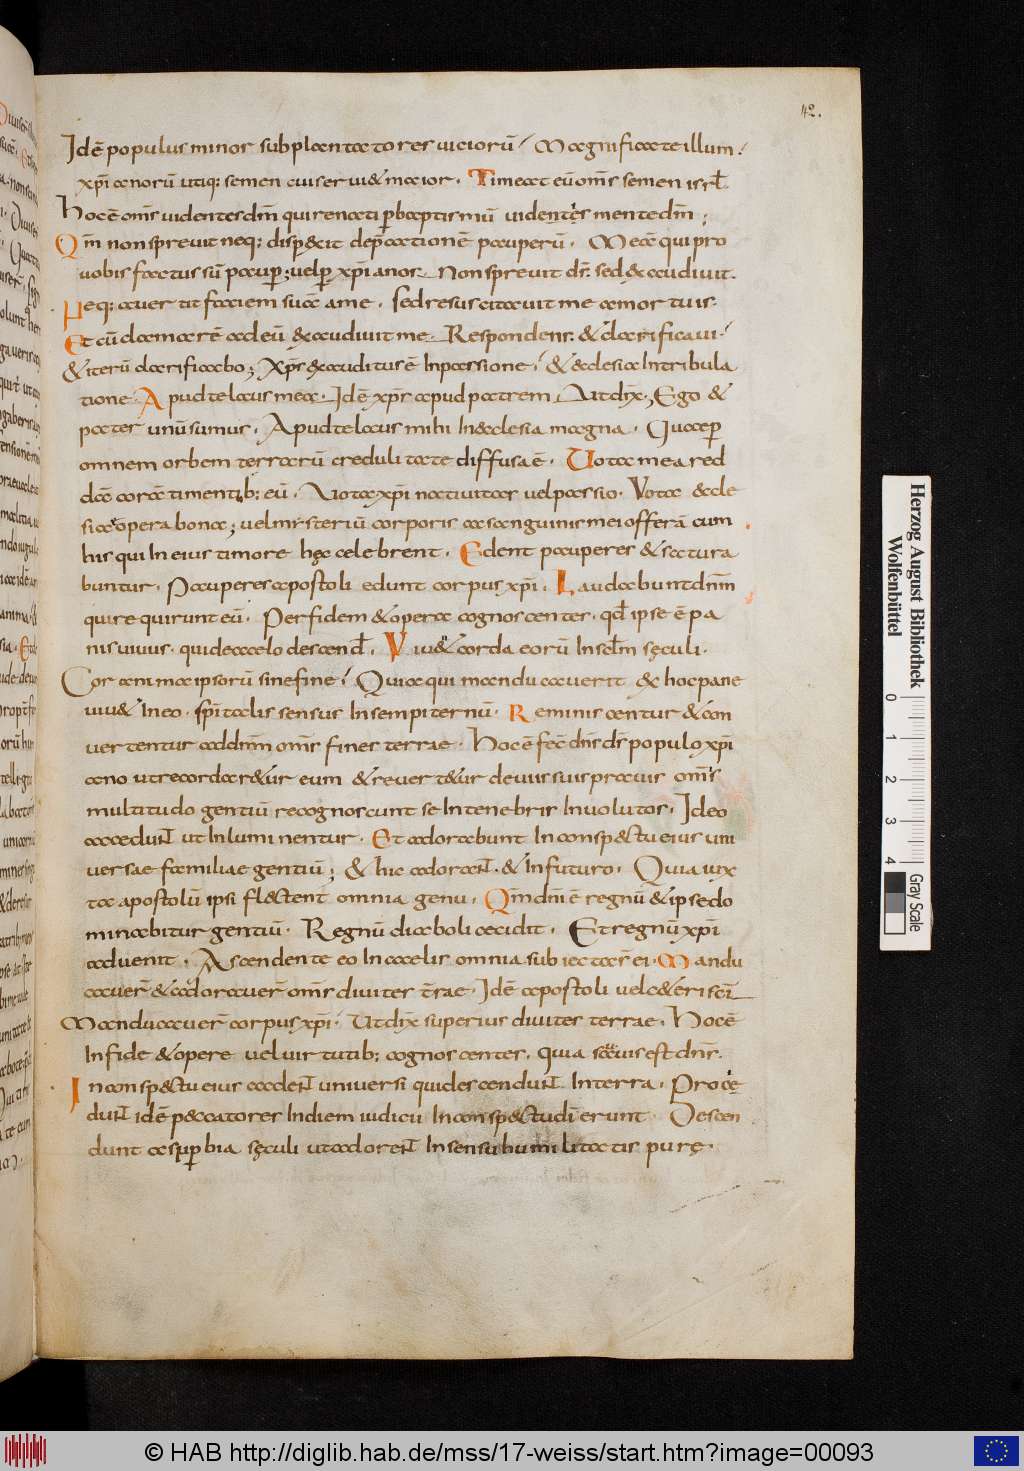 42.
Idē populus minor subplantatores uiciorū. Magnificate illum.
xp̄ianorū utiq; semen cui seruı& maior. Timeat eū om̄s semen isrl̄.
Hoc ē om̄s uidentes dm̄ qui renati p baptismū uidentes mente dm̄;
Qm̄ non spreuit neq; disp&xit depcationē pauperū. Mea qui pro
uobis factus sū paup; uel p xp̄ianos. Non spreuit ds̄. sed &audiuit.
Neq; auertit faciem suā a me. sed resuscitauit me a mortuis.
Et cū clamarē ad eū &audiuit me. Respondens. & clarificaui.
& iterū clarificabo; Xp̄s &auditus ē In passione. & &clesia In tribula
tione. Apud te laus mea. Idē xp̄s apud patrem Ait dix̄; Ego &
pater unū sumus. Apud te laus mihi In &clesia magna. Quae p
omnem orbem terrarū credulitate diffusa ē. Uota mea red
dā corā timentib; eū. Uota xp̄i natiuitas uel passio. Vota &cle
siae opera bona; uel mysteriū corporis ac sanguinis mei offerā cum
his qui In eius timore hęc celebrent. Edent pauperes & satura
buntur. Pauperes apostoli edunt corpus xp̄i. Laudabunt dn̄m
qui requirunt eū. Per fidem & opera cognoscentes. qd̄ ipse ē pa
nis uiuus. qui de caelo descend̄. Viu& corda eorū In sc̄lm sęculi.
Cor anima ipsorū sine fine. Quia qui manducauerit ex hoc pane
uiu& In eo. sp̄italis sensus In sempiternū. Reminiscentur & con
uertentur ad dn̄m om̄s fines terrae. Hoc ē fec̄ dn̄s ds̄ populo xp̄i
ano ut recordar&ur eum & reuert&ur de uiis suis prauis om̄s
multitudo gentiū recognoscunt se In tenebris Inuolutos. Ideo
accedunt ut Inluminentur. Et adorabunt In consp&tu eius uni
uersae familiae gentiū; & hic adorant. & In futuro. Quia iux
ta apostolū ipsi fl&tent omnia genu. Qm̄ dn̄i ē regnū & ipse do
minabitur gentiū. Regnū diaboli cecidit. Et regnū xp̄i
aduenit. Ascendente eo In caelis omnia subiectas ei. Mandu
cauer̄ & adorauer̄ om̄s diuites t̄rae. Idē apostoli uel c&eri sc̄i
Manducauer̄ corpus xp̄i. Ut dix̄ superius diuites terrae. Hoc ē
In fide & opere uel uirtutib; cognoscentes. quia suauis est dn̄s.
In consp&tu eius cadent uniuersi qui descendunt In terra. Proce
dunt idē p&catores In diem iudicii In consp&tu dī erunt. Descen
dunt a supbia sęculi ut adorent In sensu humilitatis purę.
Herzog August Bibliothek
Wolfenbüttel
0 1 2 3 4
Gray Scale
© HAB http://diglib.hab.de/mss/17-weiss/start.htm?image=00093